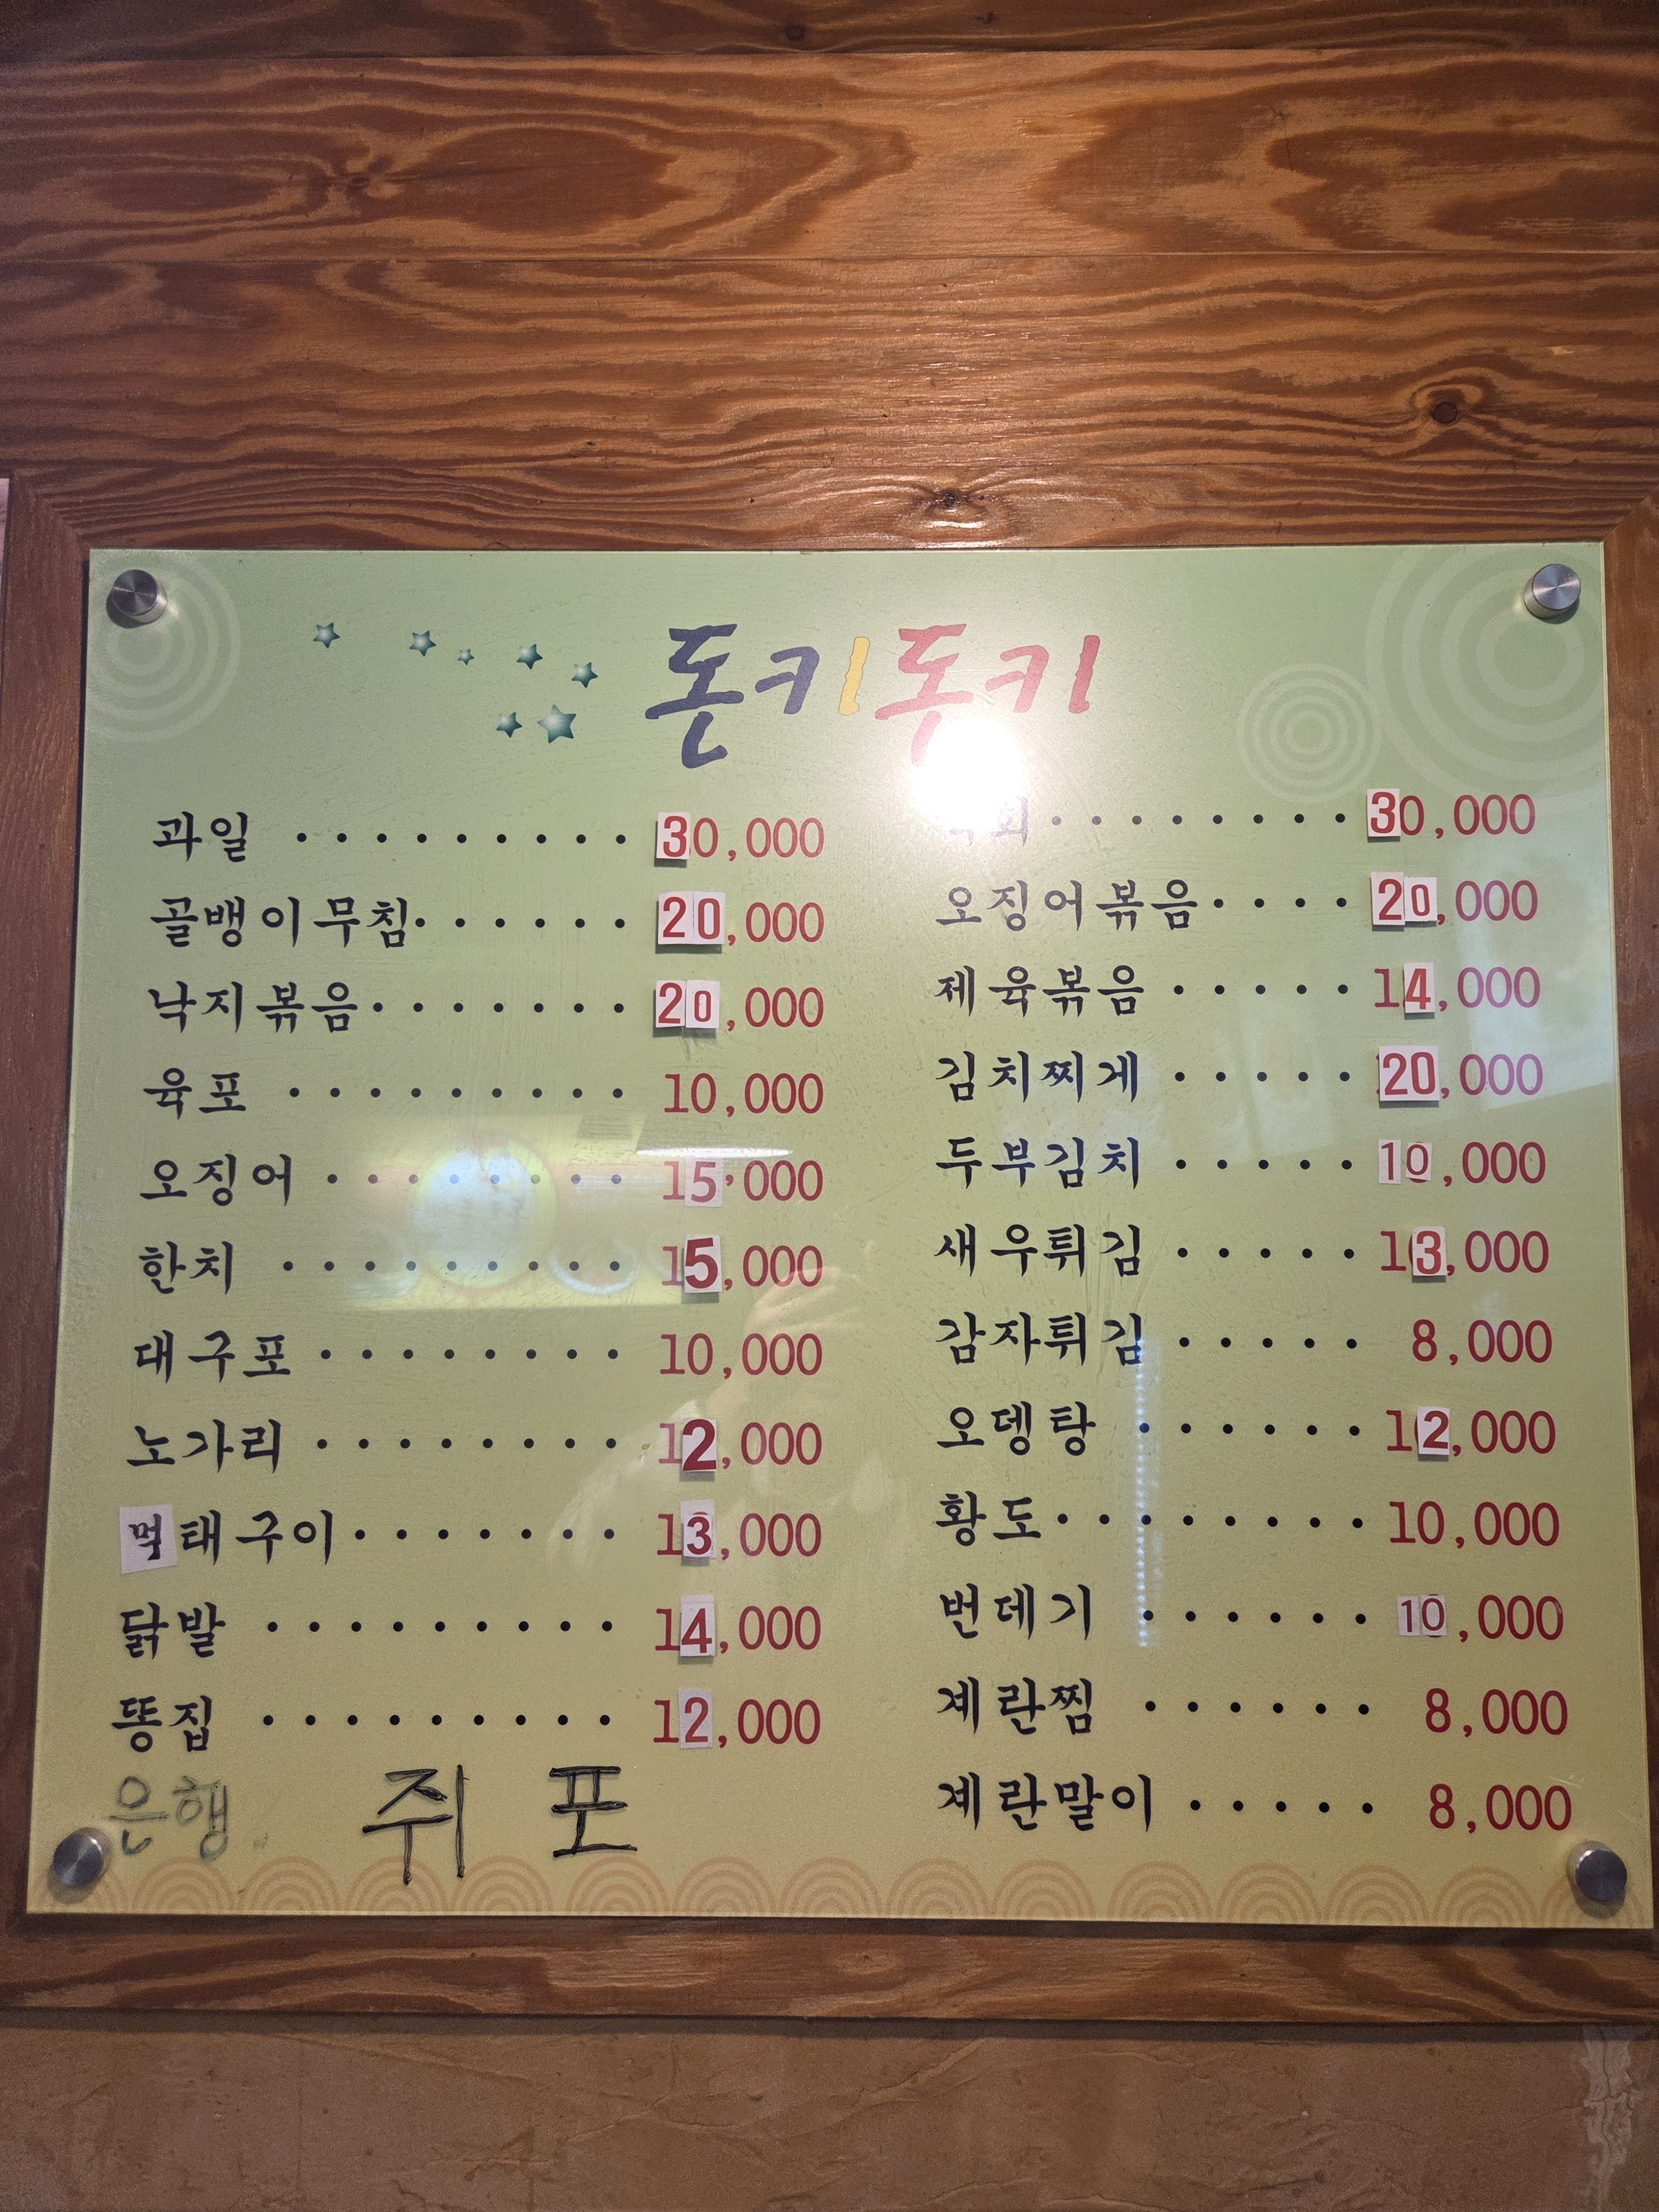 돈키돈키
과일 ·········· 30,000
골뱅이무침 ······ 20,000
낙지볶음 ······· 20,000
육포 ········· 10,000
오징어 ········ 15,000
한치 ········· 15,000
대구포 ········ 10,000
노가리 ········ 12,000
먹태구이 ······· 13,000
닭발 ········· 14,000
똥집 ········· 12,000
은행 쥐 포
········ 30,000
오징어볶음 ···· 20,000
제육볶음 ····· 14,000
김치찌게 ····· 20,000
두부김치 ····· 10,000
새우튀김 ····· 13,000
감자튀김 ····· 8,000
오뎅탕 ······ 12,000
황도 ········ 10,000
번데기 ······ 10,000
계란찜 ······ 8,000
계란말이 ····· 8,000